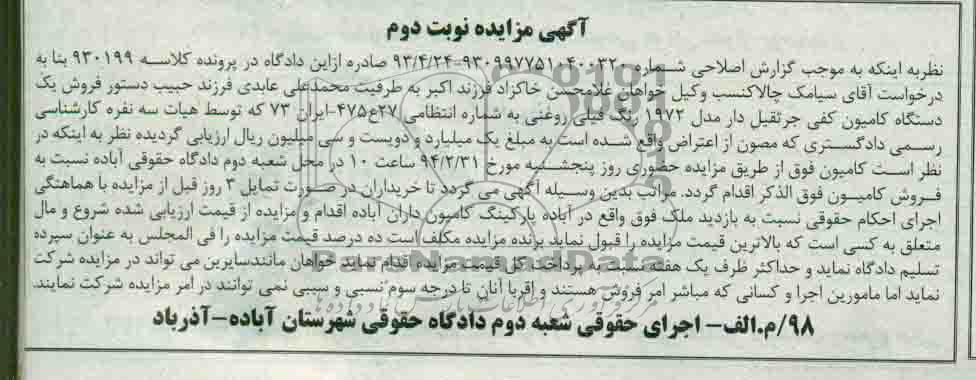 آگهی مزایده نوبت دوم
نظربه اینکه به موجب گزارش اصلاحی شماره ۹۳۰۹۹۷۷۵۱۰۴۰۰۳۲۰-۹۳/۴/۲۴ صادره ازاین دادگاه در پرونده کلاسه ۹۳۰۱۹۹ بنا به
درخواست آقای سیامک چالاکنسب وکیل خواهان غلامحسن خاکزاد فرزند اکبر به طرفیت محمدعلی عابدی فرزند حبیب دستور فروش یک
دستگاه کامیون کفی جرثقیل دار مدل ۱۹۷۲ رنگ فیلی روغنی به شماره انتظامی ۲۷ع۴۷۵-ایران ۷۳ که توسط هیات سه نفره کارشناسی
رسمی دادگستری که مصون از اعتراض واقع شده است به مبلغ یک میلیارد و دویست و سی میلیون ریال ارزیابی گردیده نظر به اینکه در
نظر است کامیون فوق از طریق مزایده حضوری روز پنجشنبه مورخ ۹۴/۲/۳۱ ساعت ۱۰ در محل شعبه دوم دادگاه حقوقی آباده نسبت به
فروش کامیون فوق الذکر اقدام گردد. مراتب بدین وسیله آگهی می گردد تا خریداران در صورت تمایل ۳ روز قبل از مزایده با هماهنگی
اجرای احکام حقوقی نسبت به بازدید ملک فوق واقع در آباده پارکینگ کامیون داران آباده اقدام و مزایده از قیمت ارزیابی شده شروع و مال
متعلق به کسی است که بالاترین قیمت مزایده را قبول نماید برنده مزایده مکلف است ده درصد قیمت مزایده را فی المجلس به عنوان سپرده
تسلیم دادگاه نماید و حداکثر ظرف یک هفته نسبت به پرداخت کل قیمت مزایده اقدام نماید خواهان مانندسایرین می تواند در مزایده شرکت
نماید اما مامورین اجرا و کسانی که مباشر امر فروش هستند و اقربا آنان تا درجه سوم نسبی و سببی نمی توانند در امر مزایده شرکت نمایند.
۹۸/م.الف- اجرای حقوقی شعبه دوم دادگاه حقوقی شهرستان آباده-آذرباد
ParsNamadData